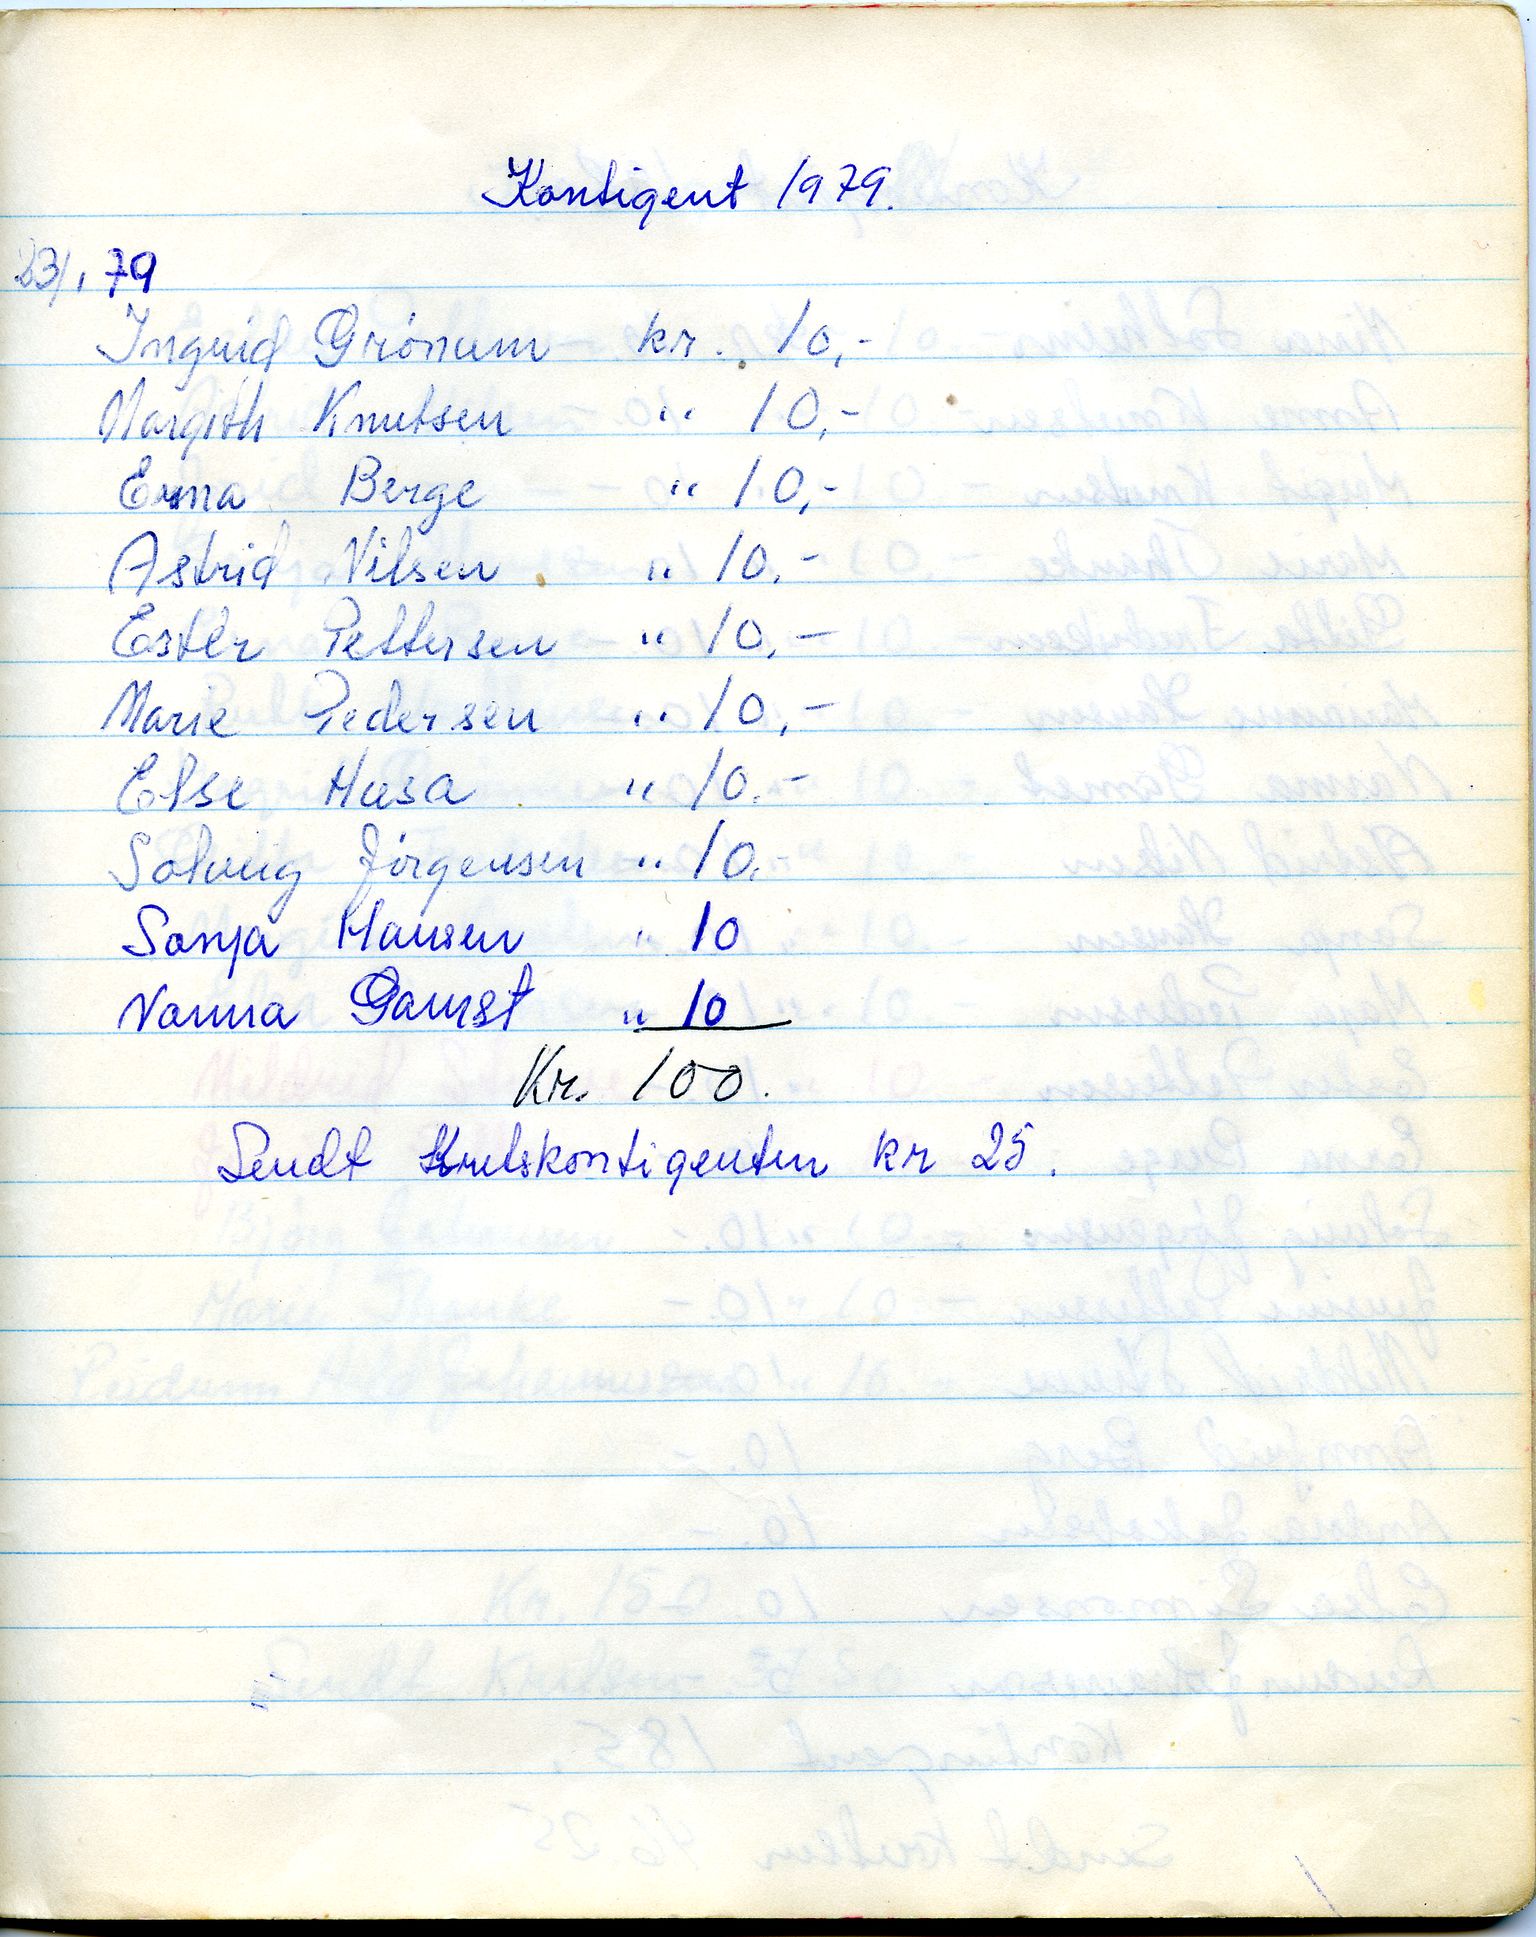 Kontigent 1979.
23/1 79
Ingrid Grönum kr. 10,-
Margith Knutsen " 10,-
Erna Berge " 10,-
Astrid Nilsen " 10,-
Ester Pettersen " 10,-
Marie Pedersen " 10,-
Else Husa " 10,-
Solveig Jörgensen " 10,-
Sonja Hansen " 10
Nanna Gamst " 10
Kr. 100.
Sendt Kretskontigenten kr 25.